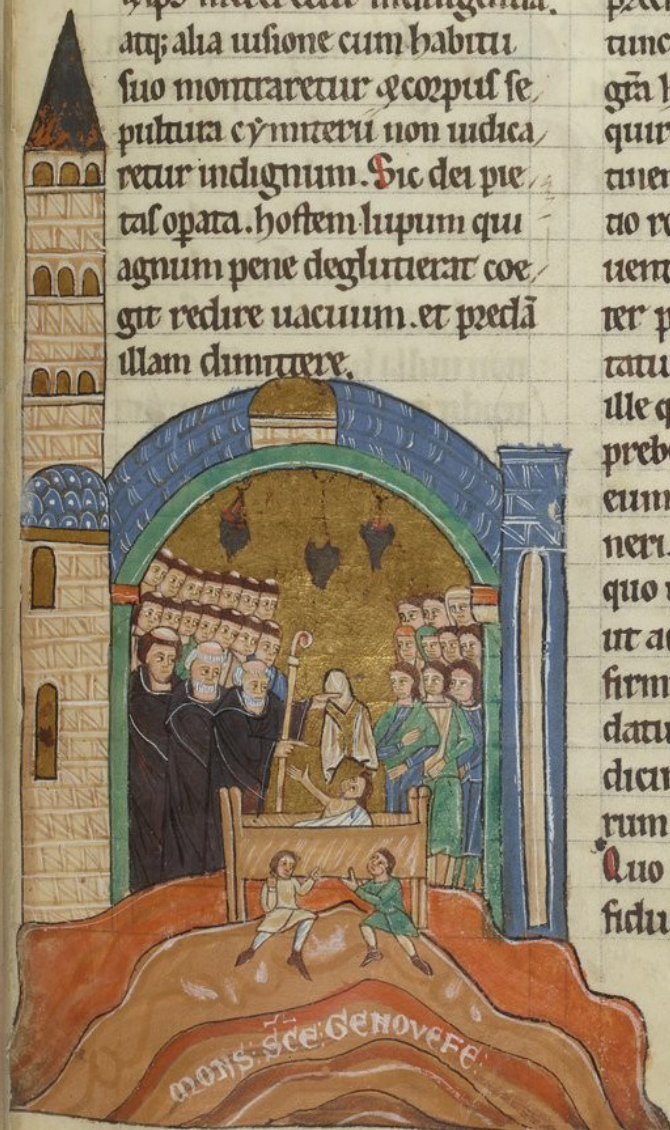 atq; alia uisione cum habitu
suo montraretur & corpus se
pultura cymiterii non iudica
retur indignum. Sic dei pie
tas opata. hostem lupum qui
agnum pene deglutierat coe
git redire uacuum. et predā
illam dimittere.
tunc
quir
tio re
uent
ter p
tatu
ille q
preb
eum
neri.
quo
ut a
firm
datu
dicu
rum
Quo
fidu
MONS: SC̄E: GENOVEFE: